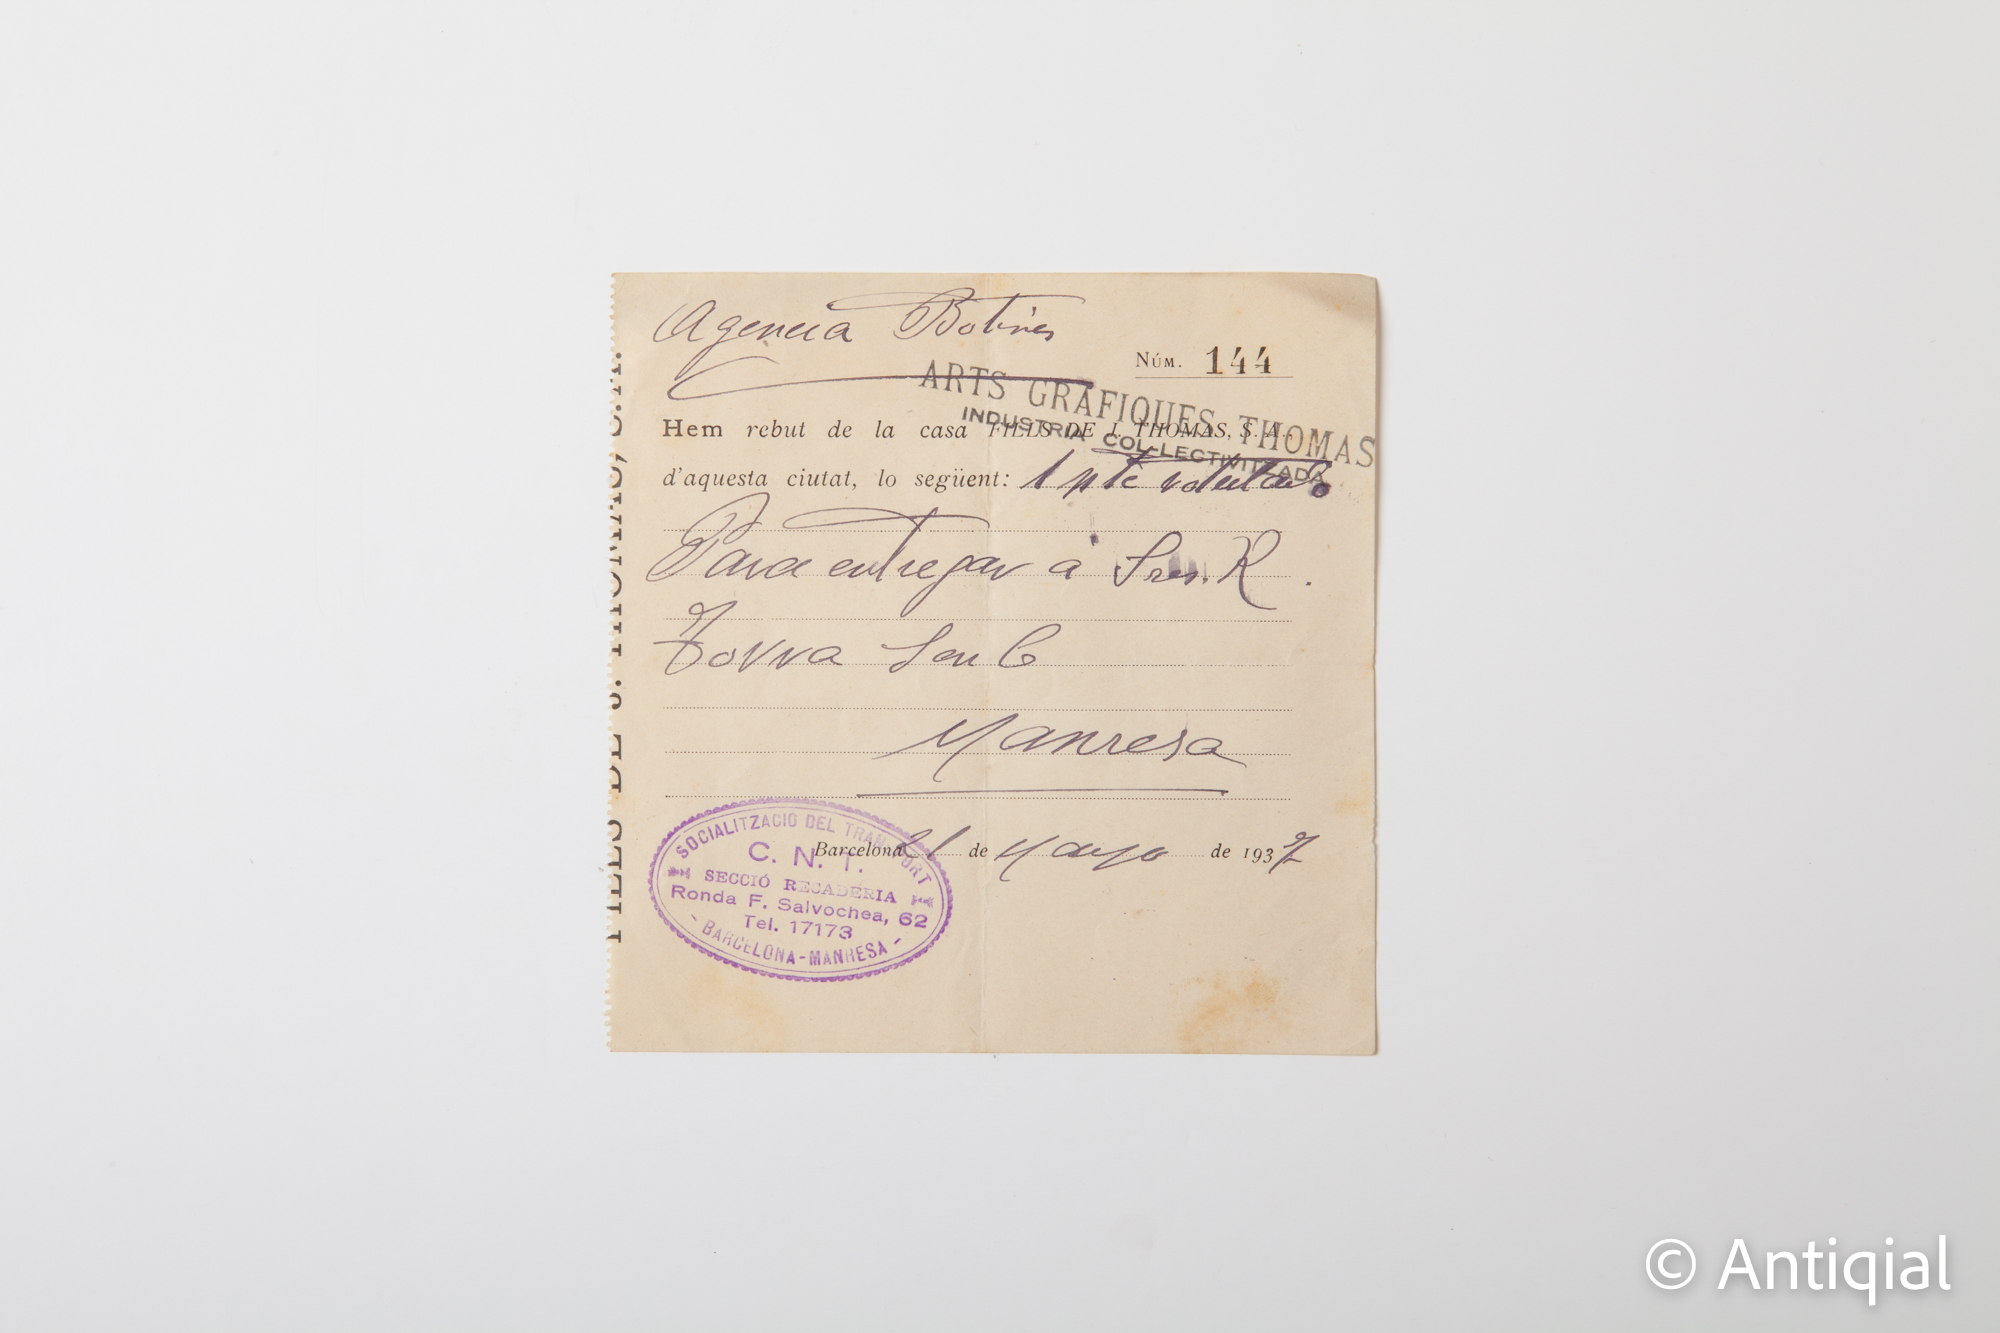 Agencia Botines
NÚM. 144
ARTS GRÀFIQUES THOMAS
INDUSTRIA COL·LECTIVITZADA
Hem rebut de la casa FILLS DE J. THOMAS, S. A.,
d'aquesta ciutat, lo següent: 1 pte
Para entregar á Sres. R.
Torra
Manresa
Barcelona 21 de Mayo de 1937
SOCIALITZACIO DEL TRANSPORT
C. N. T.
SECCIÓ RECADERIA
Ronda F. Salvochea, 62
Tel. 17173
- BARCELONA-MANRESA -
FILLS DE J. THOMAS, S.A.
© Antiqial